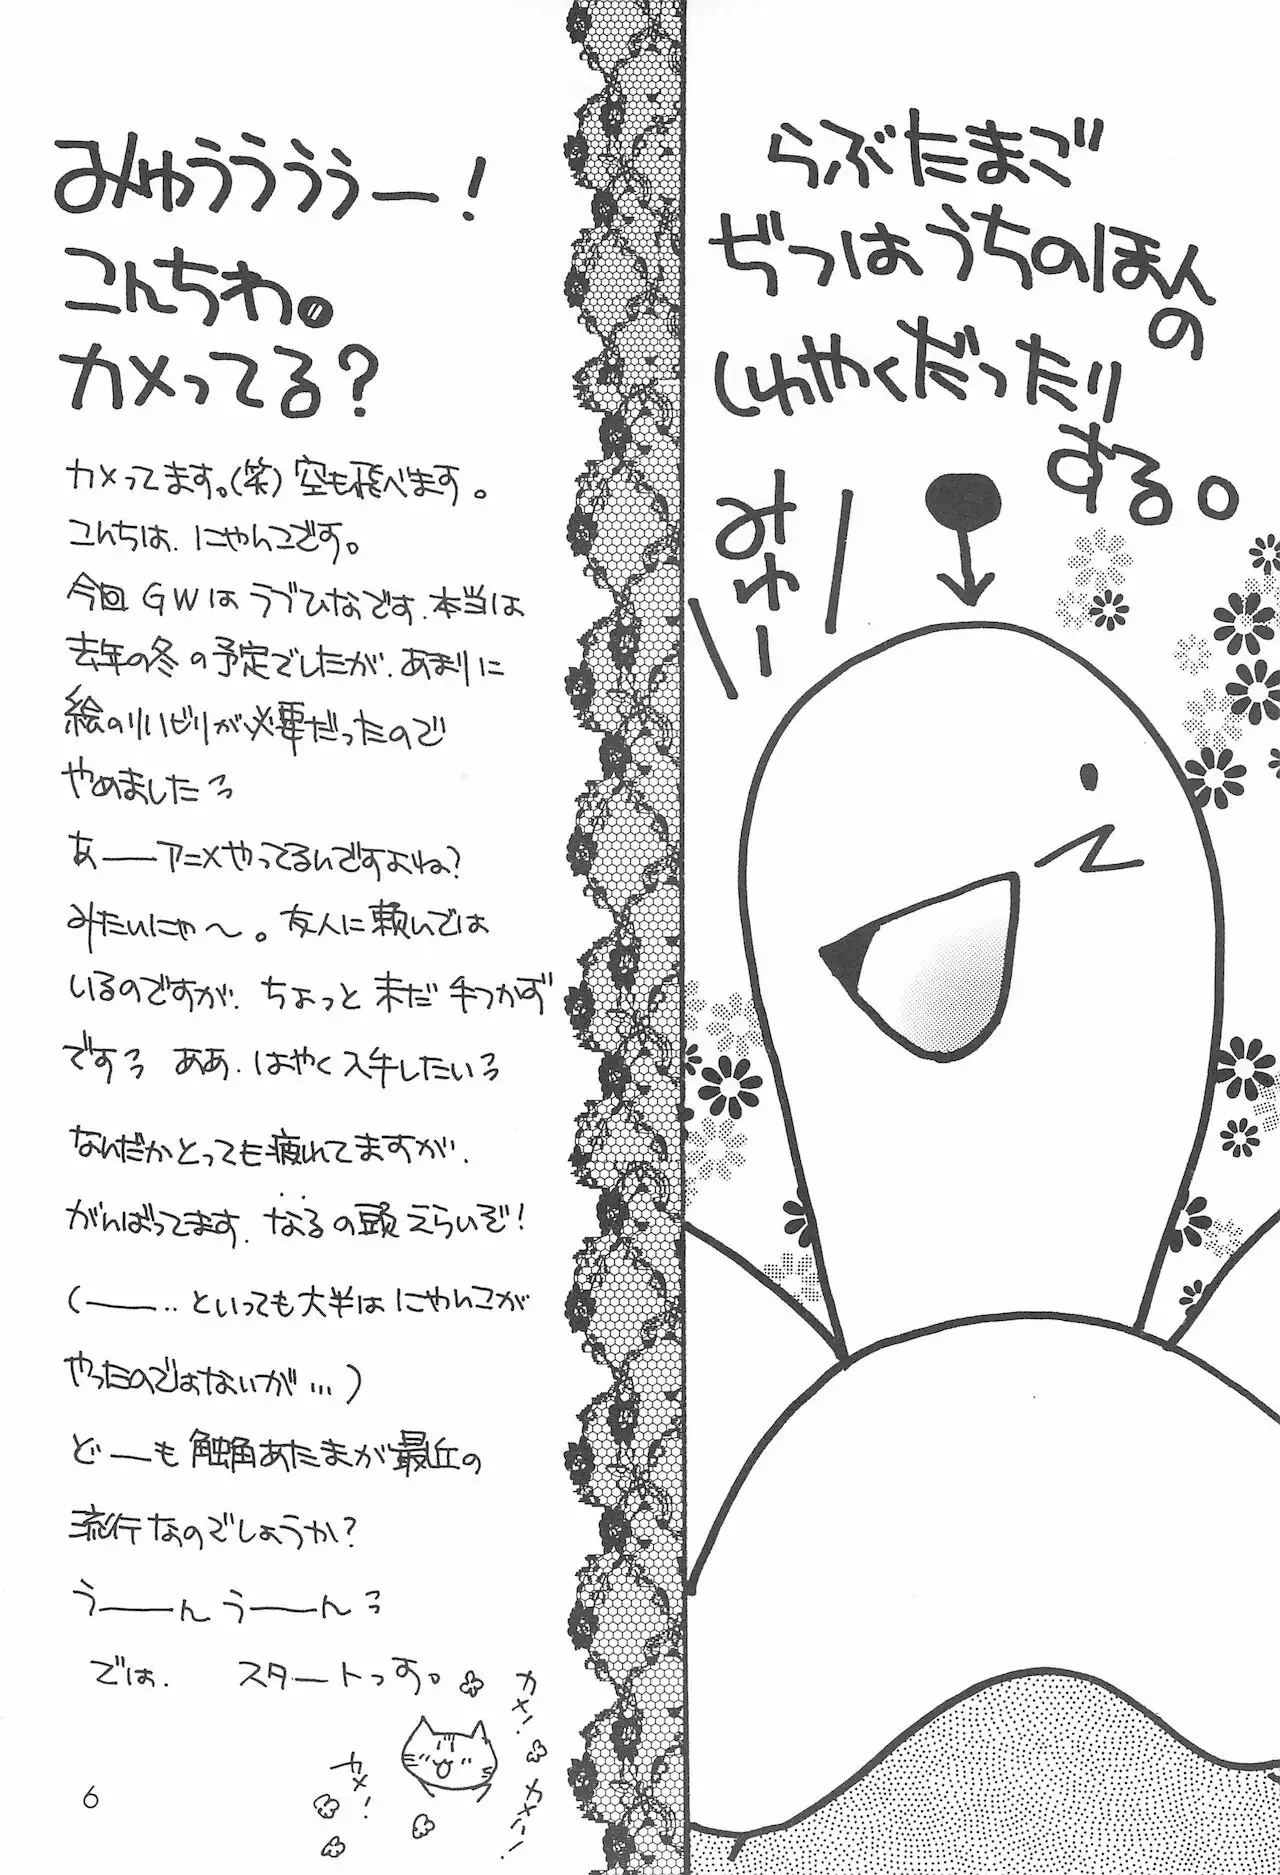 みゅうううぅー！
こんちわ。
カメってる？
カメってます。(笑) 空も飛べます。
こんちは、にゃんこです。
今回GWはラブひなです、本当は
去年の冬の予定でしたが、あまりに
絵のリハビリが必要だったので
やめましたっ
あーーアニメやってるんですよね？
みたいにゃ〜。友人に頼んでは
いるのですが、ちょっと未だ手つかず
ですっ ああ、はやく入手したいっ
なんだかとっても疲れてますが、
がんばってます、なるの頭えらいぞ！
(ーー‥といっても大半はにゃんこが
やったのではないが…)
どーも触角あたまが最近の
流行なのでしょうか？
うーーんうーーんっ
では、 スタートっす。
カメ！
カメ！
カメ！
6
らぶたまご
ぢつはうちのほんの
しゅやくだったり
する。
みゅー